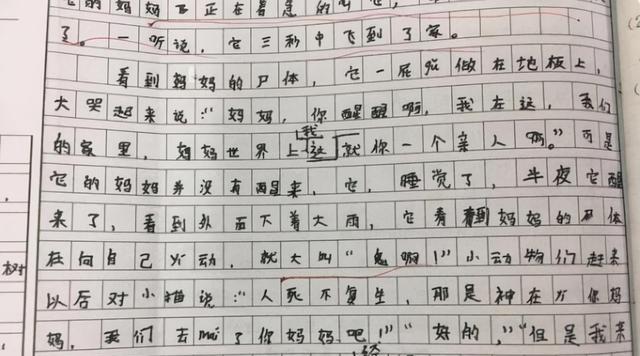 它的妈妈正在着急的叫它,
了。一听说,它三秒中飞到了家。
看到妈妈的尸体,它一屁股做在地板上,
大哭起来说:“妈妈,你醒醒啊,我在这,我们
我
的家里,妈妈世界上这就你一个亲人啊。”可是
它的妈妈并没有醒来,它,睡觉了,半夜它醒
来了,看到外面下着大雨,它看着到妈妈的尸体
在向自己移动,就大叫“鬼啊!”小动物们起来
以后对小猫说:“人死不复生,那是神在为你妈
妈,我们去mai了你妈妈吧!”“好的,”“但是我来
树